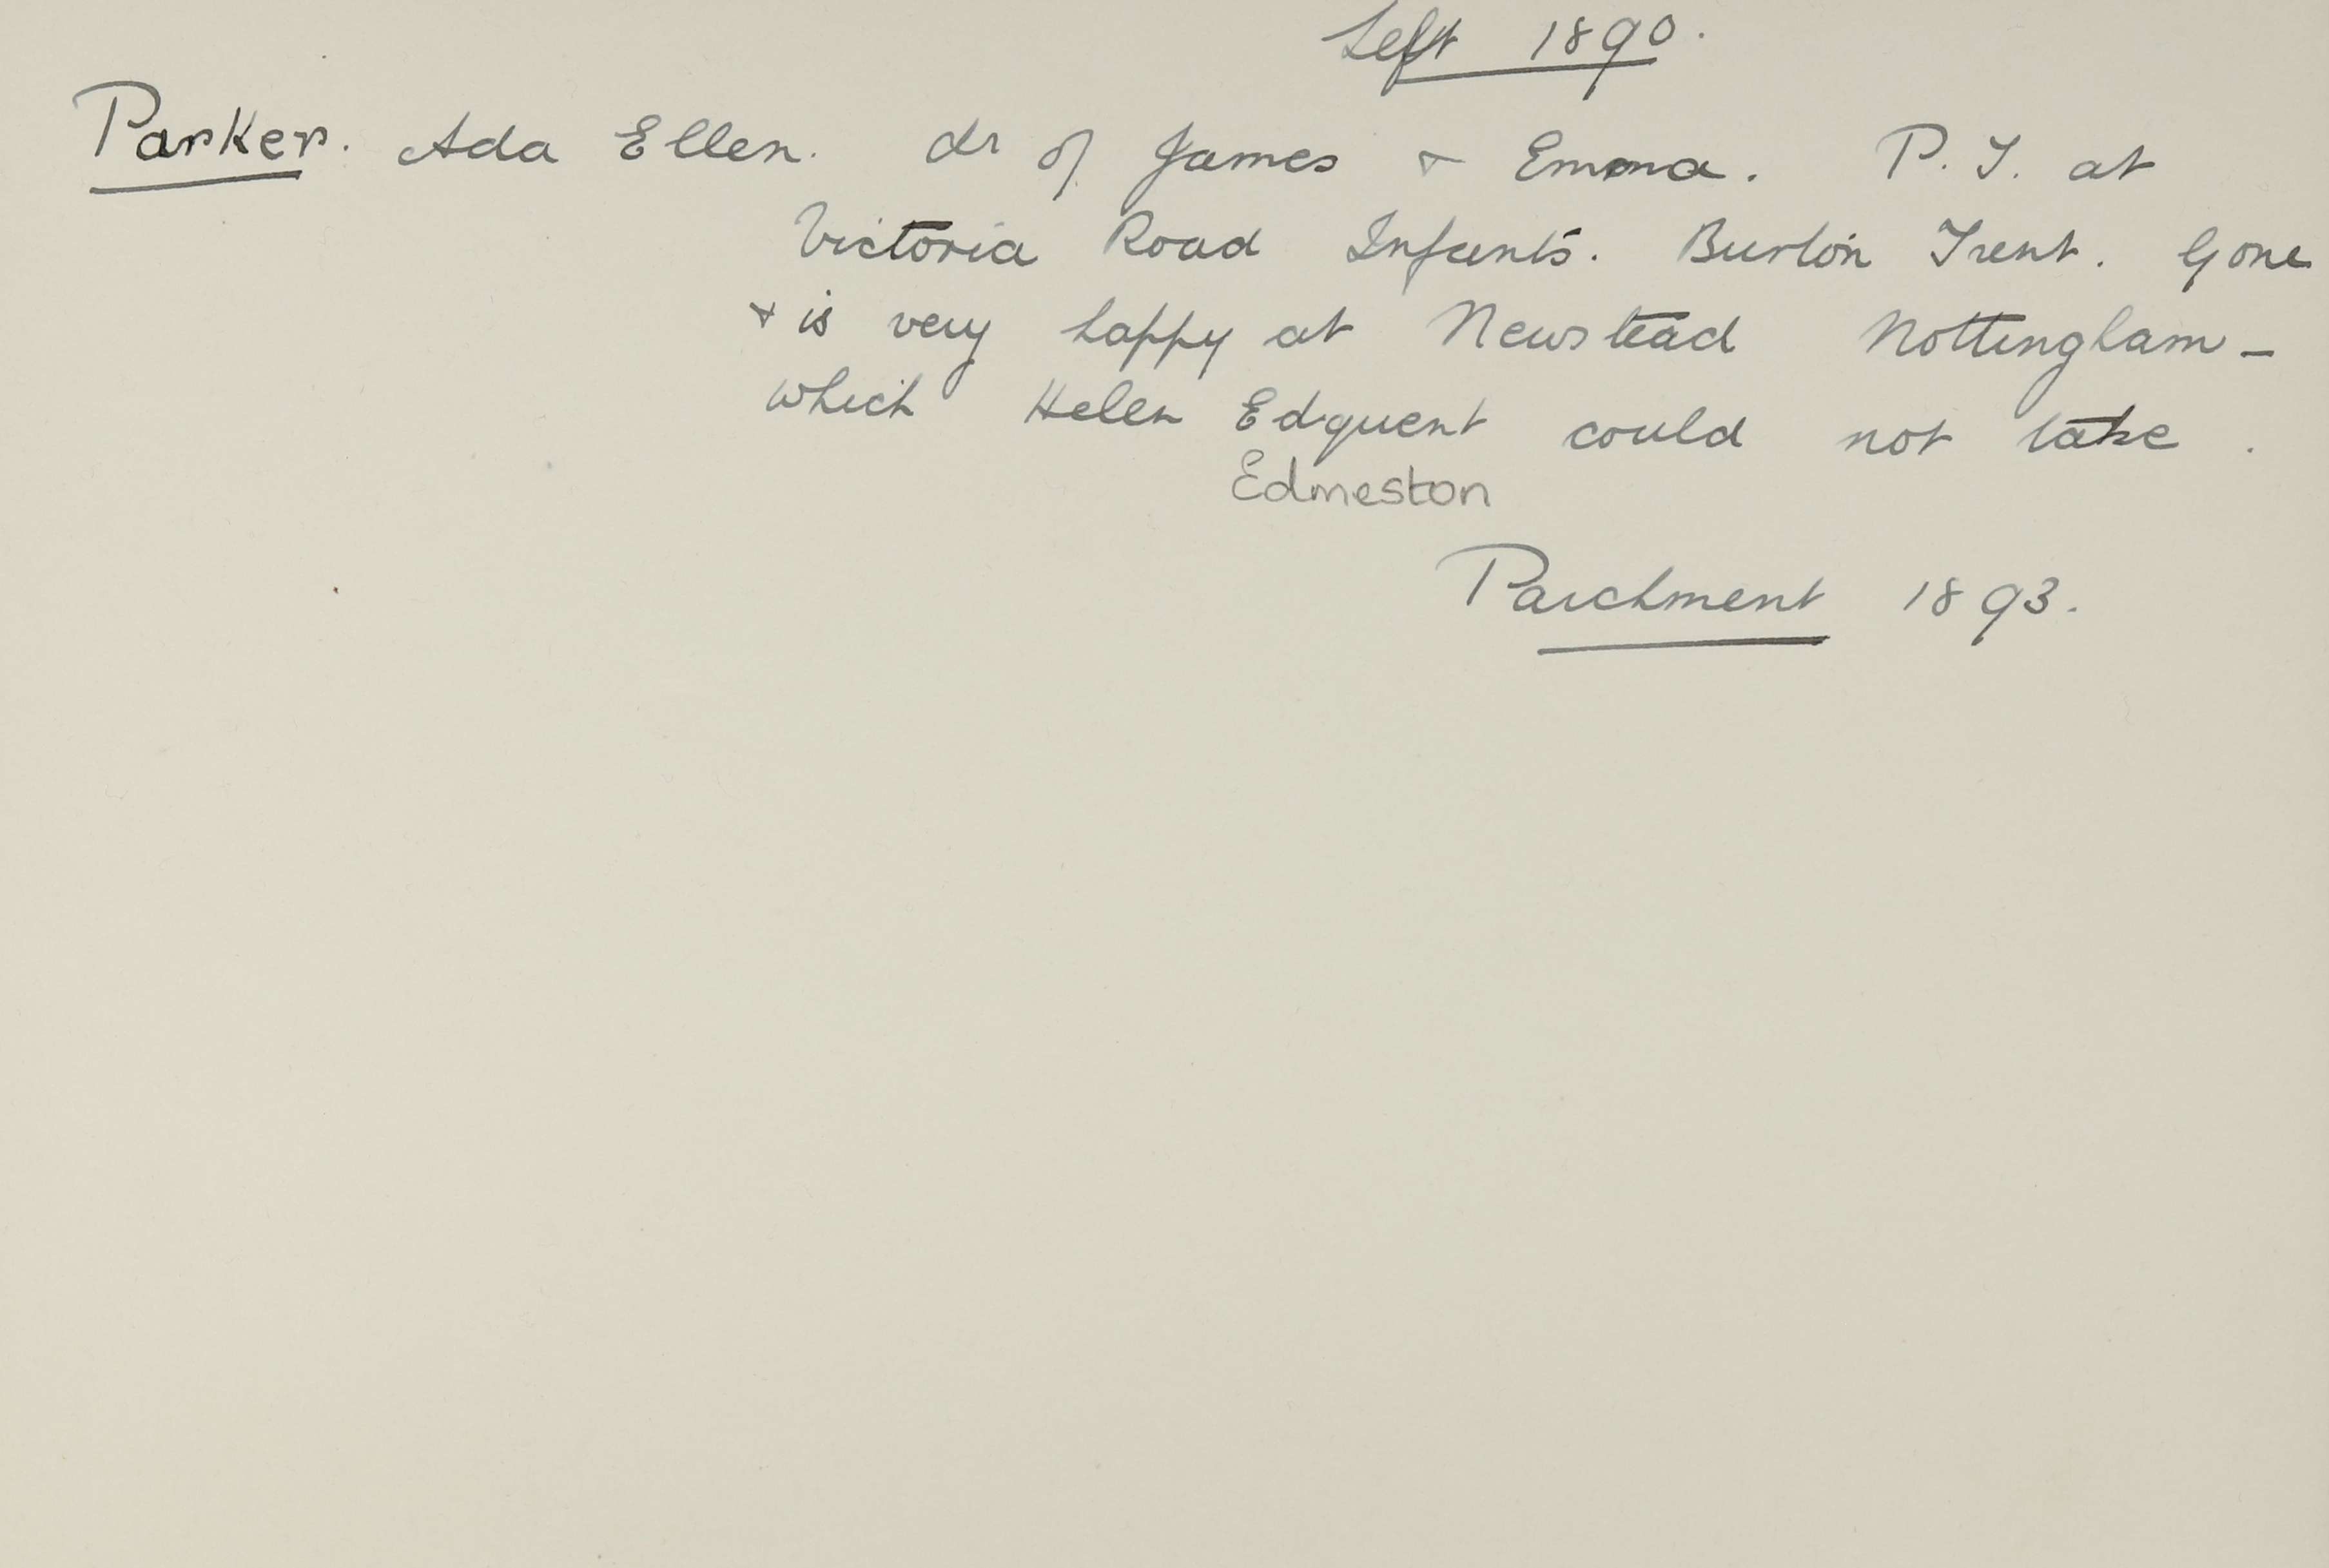 Left 1890.
Parker. Ada Ellen. dr of James & Emma. P.T. at
Victoria Road Infants. Burton Trent. Gone
& is very happy at Newstead Nottingham -
which Helen Edquent could not take.
Edmeston
Parchment 1893.